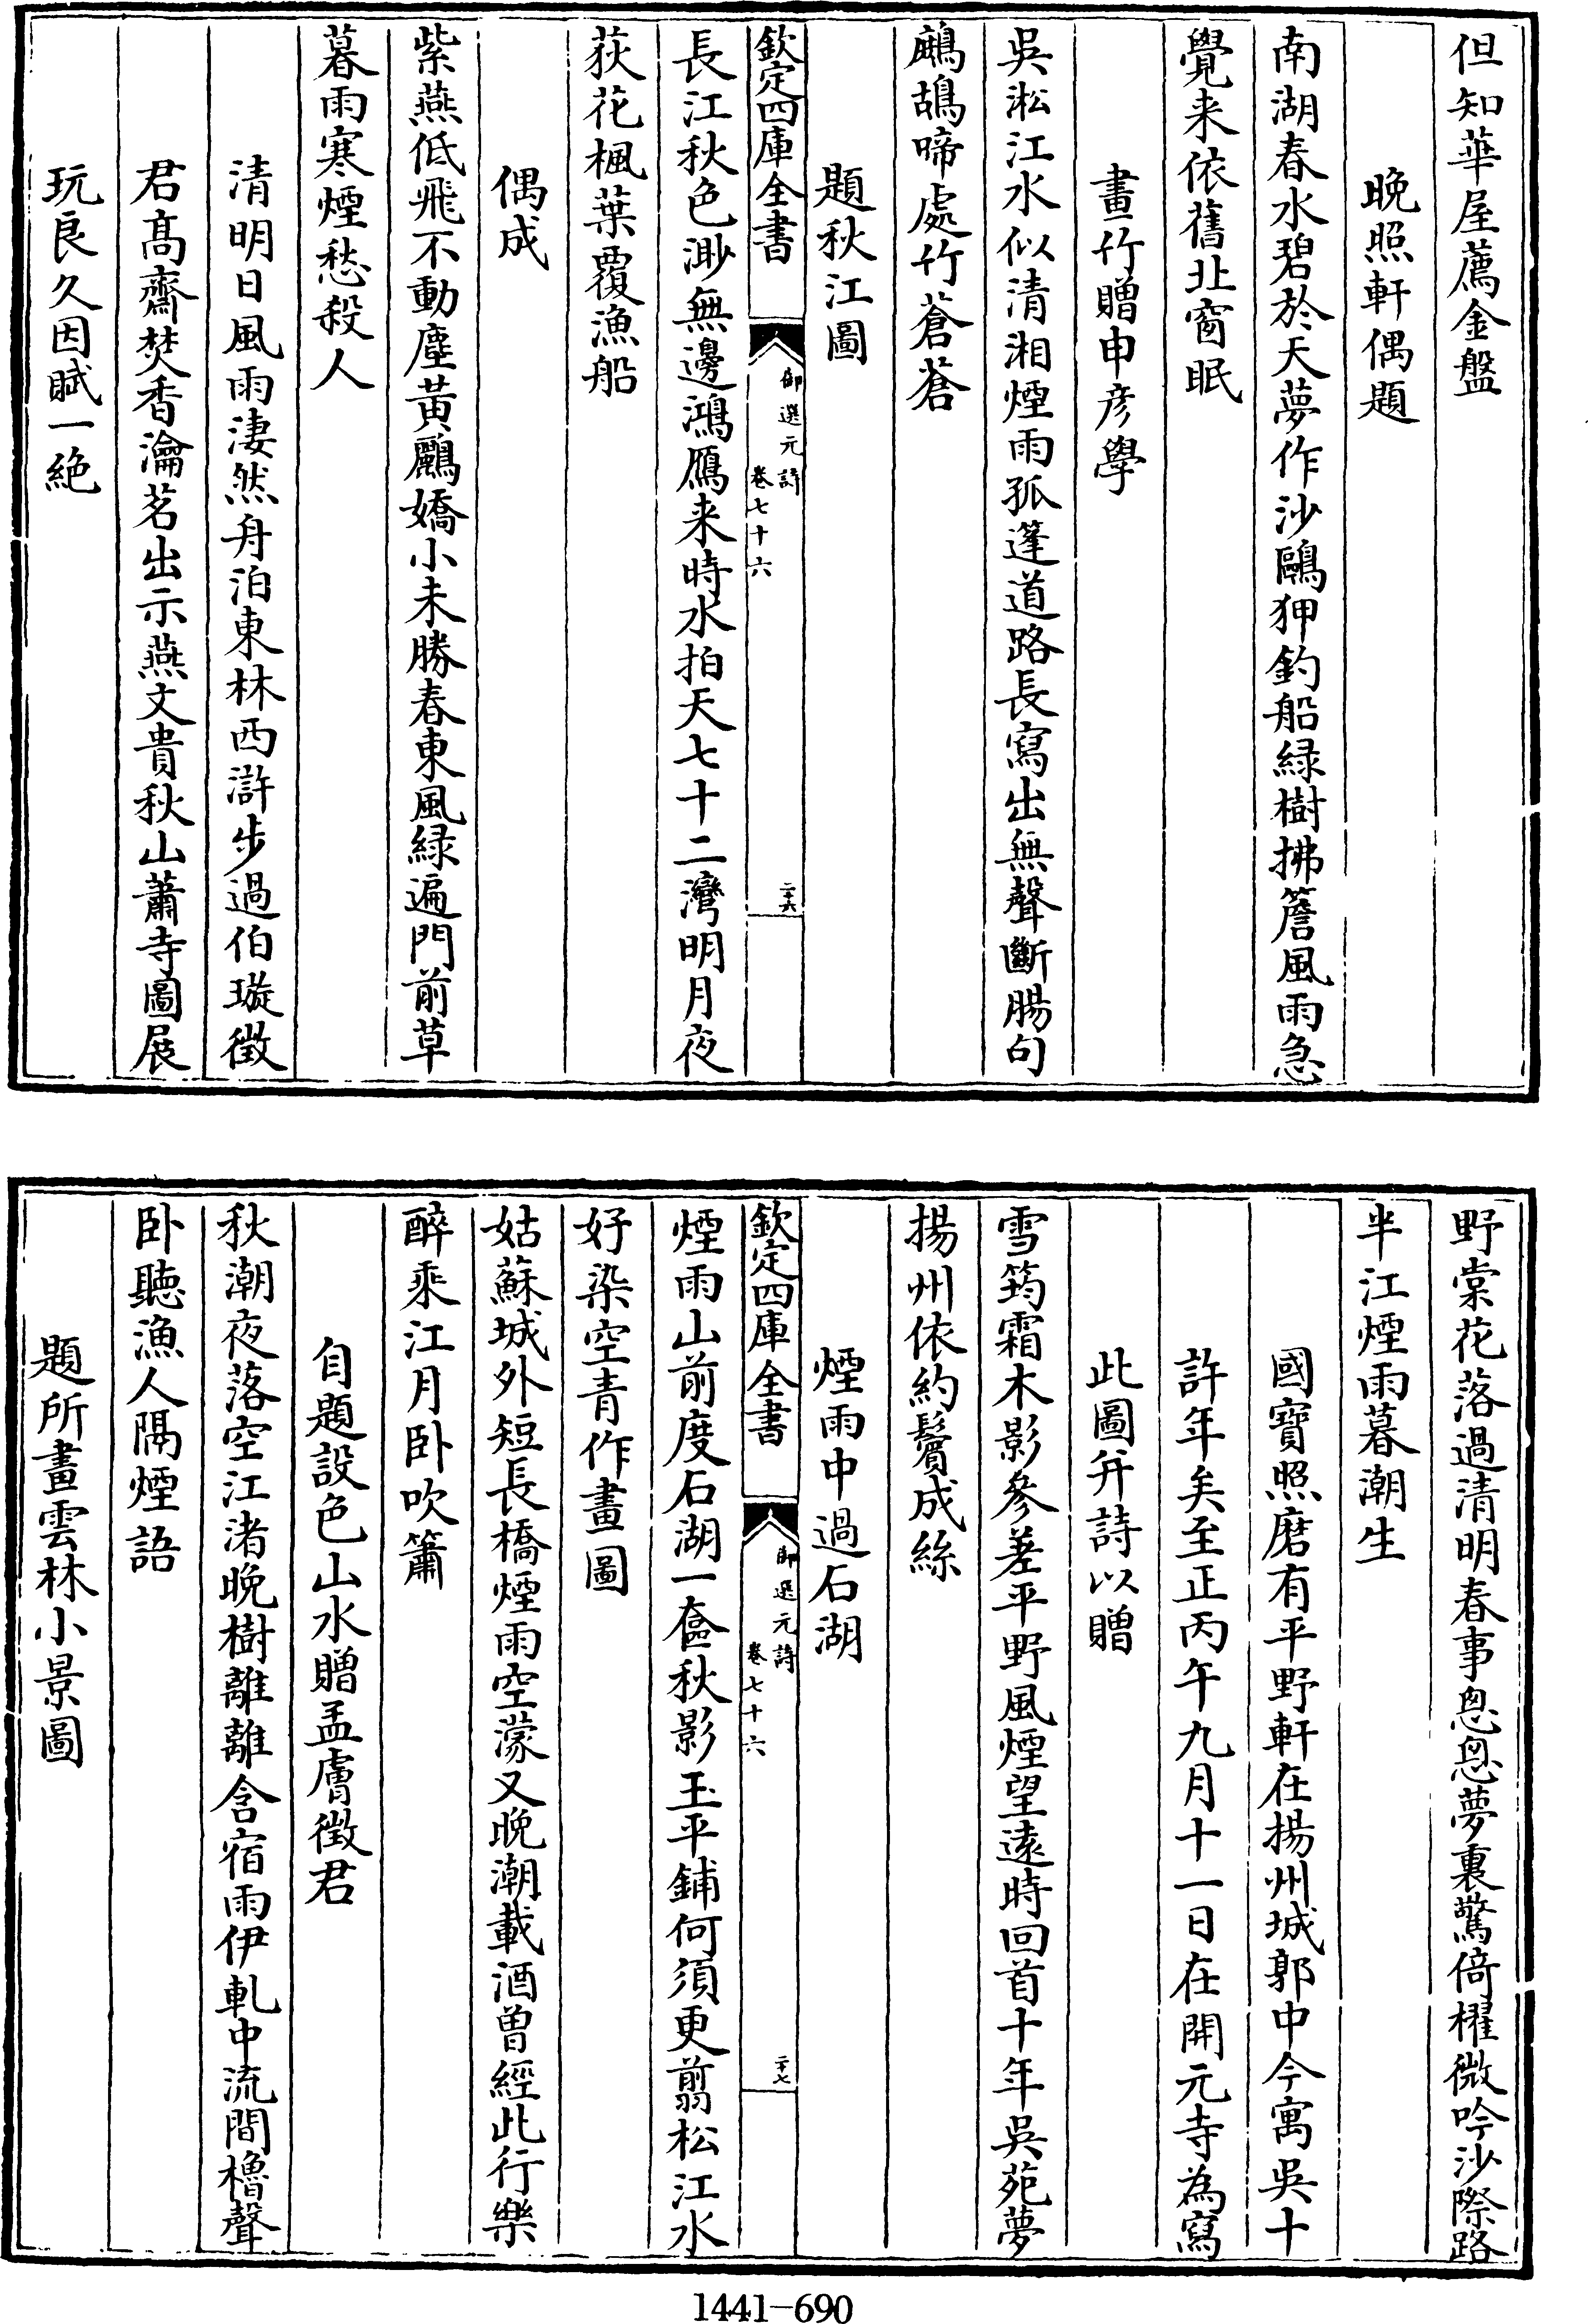 但知華屋薦金盤
晚照軒偶題
南湖春水碧於天夢作沙鷗狎釣船緑樹拂簷風雨急
覺来依舊北窗眠
畫竹贈申彦學
吳淞江水似清湘煙雨孤篷道路長寫出無聲斷腸句
鷓鴣啼處竹蒼蒼
題秋江圖
欽定四庫全書
御選元詩
卷七十六
二十六
長江秋色渺無邊鴻鴈来時水拍天七十二灣明月夜
荻花楓葉覆漁船
偶成
紫燕低飛不動塵黄鸝嬌小未勝春東風緑遍門前草
暮雨寒煙愁殺人
清明日風雨淒然舟泊東林西滸步過伯璇徴
君髙齋焚香瀹茗出示燕文貴秋山蕭寺圖展
玩良久因賦一絶
野棠花落過清明春事怱怱夢裏驚倚櫂微吟沙際路
半江煙雨暮潮生
國寶照磨有平野軒在揚州城郭中今寓吳十
許年矣至正丙午九月十一日在開元寺為寫
此圖并詩以贈
雪筠霜木影參差平野風煙望逺時回首十年吳苑夢
揚州依約鬢成絲
煙雨中過石湖
欽定四庫全書
御選元詩
卷七十六
二十七
煙雨山前度石湖一奩秋影玉平鋪何須更翦松江水
好染空青作畫圖
姑蘇城外短長橋煙雨空濛又晚潮載酒曽經此行樂
醉乘江月卧吹簫
自題設色山水贈孟膚徴君
秋潮夜落空江渚晚樹離離含宿雨伊軋中流間櫓聲
卧聽漁人隔煙語
題所畫雲林小景圖
1441—690